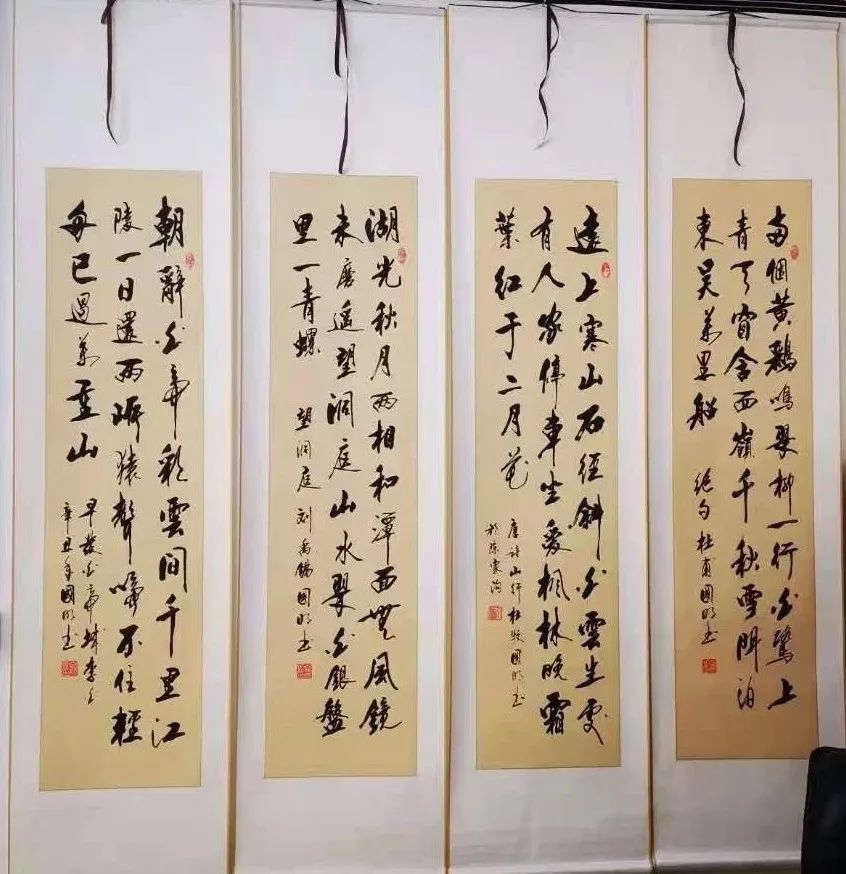 两個黄鸝鳴翠柳一行白鷺上
青天窗含西嶺千秋雪門泊
東吴萬里船
绝句 杜甫 國明书
遠上寒山石径斜白雲生處
有人家停車坐愛枫林晚霜
葉红于二月花
唐诗山行杜牧國明书
於陈家沟
湖光秋月两相和潭面無風鏡
未磨遥望洞庭山水翠白銀盤
里一青螺
望洞庭 刘禹锡 國明书
朝辭白帝彩雲間千里江
陵一日還两岸猿聲啼不住輕
舟已過萬重山
早發白帝城李白
辛丑年國明书